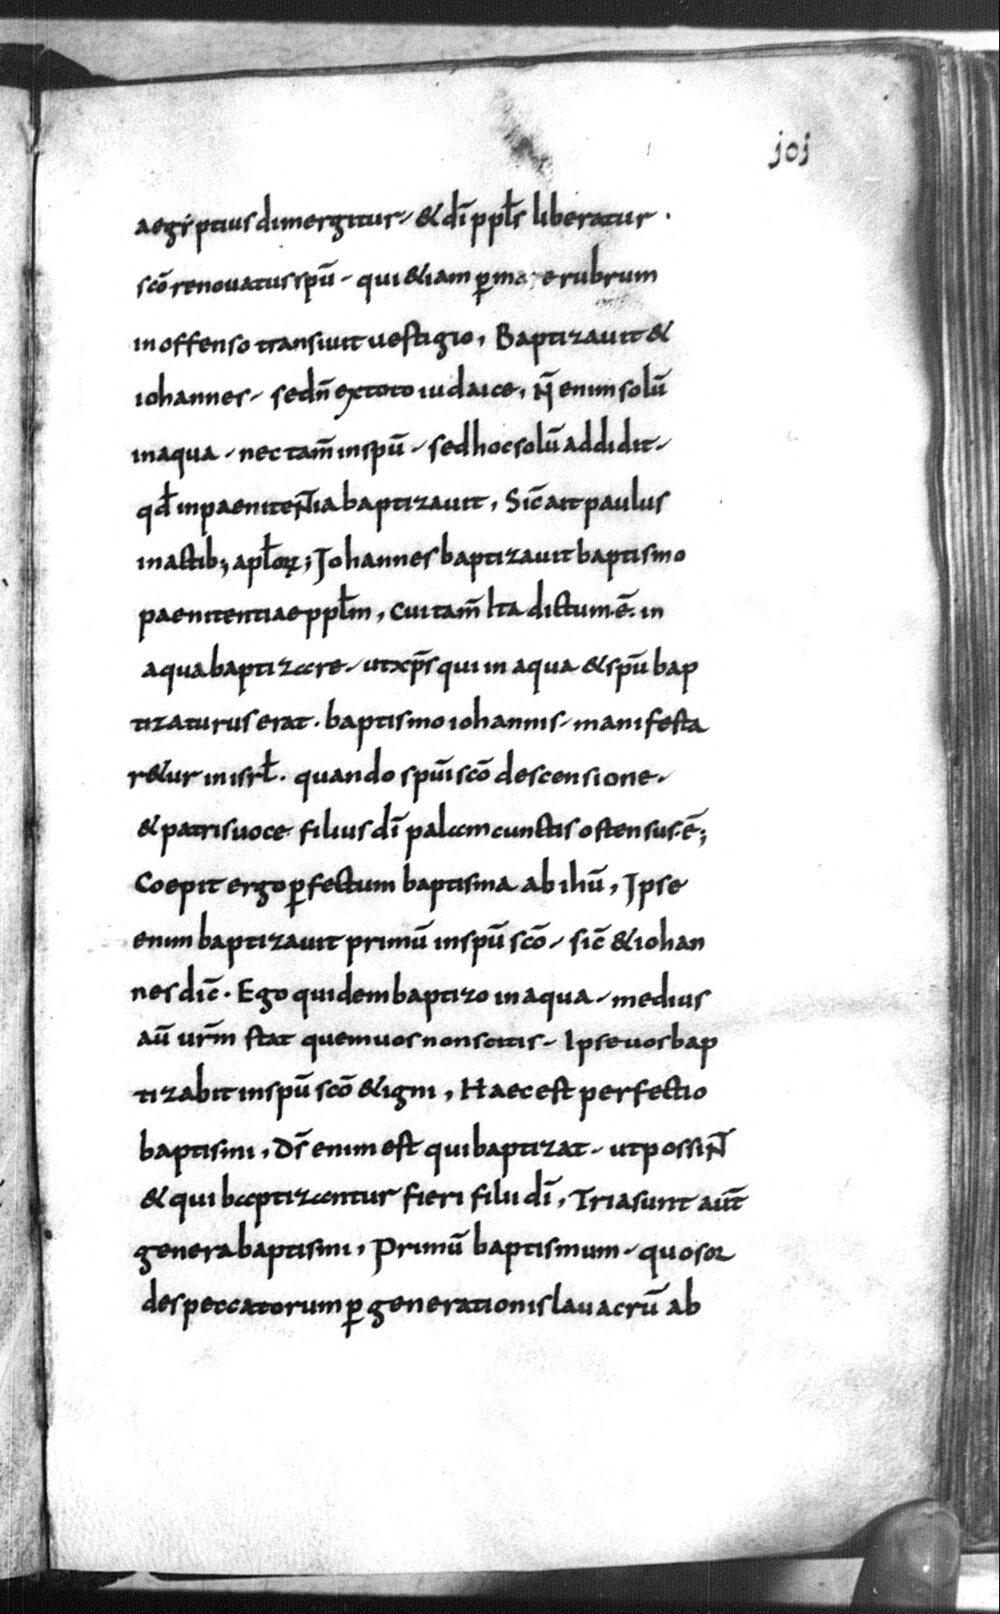 joj
aegiptius dimergitur & dī ppl̄s liberatur .
scō renouatus spū qui &iam p̄ mare rubrum
inoffenso transiuit uestigio, Baptizauit &
iohannes sed n̄ ex toto iudaice, N̄ enim solū
in aqua nec tam̄ in spū sed hoc solū addidit
qd̄ in paenitentia baptizauit, Sic̄ ait paulus
in actib; apl̄oꝝ; Johannes baptizauit baptismo
paenitentiae ppl̄m, cui tam̄ Ita dictum .ē. in
aqua baptizare ut xp̄s qui in aqua & spū bap
tizaturus erat . baptismo iohannis manifesta
r&ur in isrl̄ . quando spūi scō descensione
& patris uoce filius dī palam cunctis ostensus .ē;
Coepit ergo ꝑfectum baptisma ab ihū, Ipse
enim baptizauit primū in spū scō sic̄ & iohan
nes dic̄ . Ego quidem baptizo in aqua medius
aū ur̄m stat quem uos non scitis Ipse uos bap
tizabit in spū scō & igni, Haec est perfectio
baptismi, Ds̄ enim est qui baptizat ut possint
& qui baptizantur fieri filii dī, Tria sunt aūt
genera baptismi, Primū baptismum quo sor
des peccatorum ꝑ generationis lauacrū ab